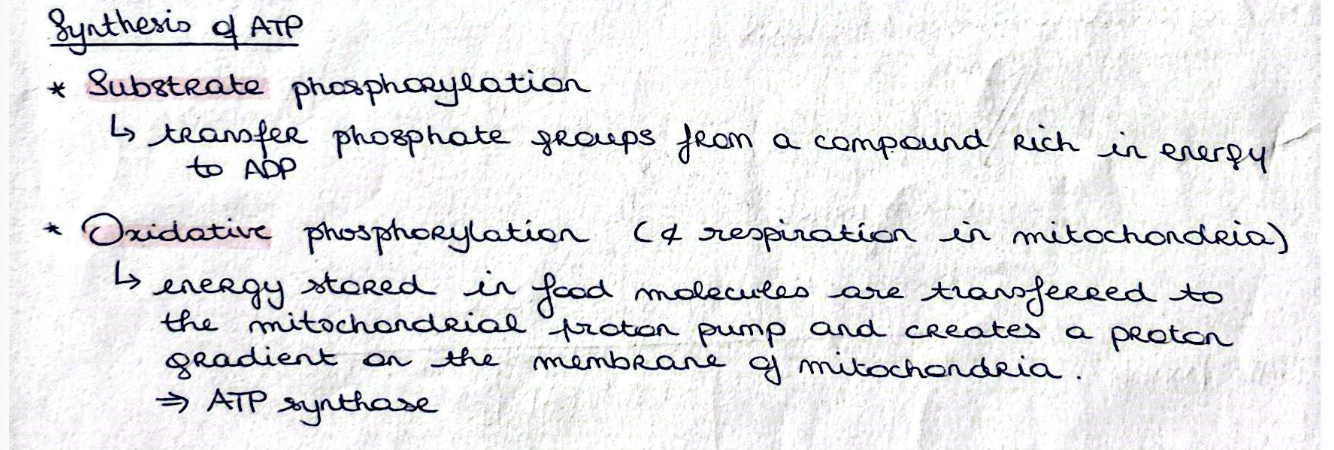 Synthesis of ATP
* Substrate phosphorylation
↳ transfer phosphate groups from a compound rich in energy
to ADP
* Oxidative phosphorylation (& respiration in mitochondria)
↳ energy stored in food molecules are transferred to
the mitochondrial proton pump and creates a proton
gradient on the membrane of mitochondria.
⇒ ATP synthase